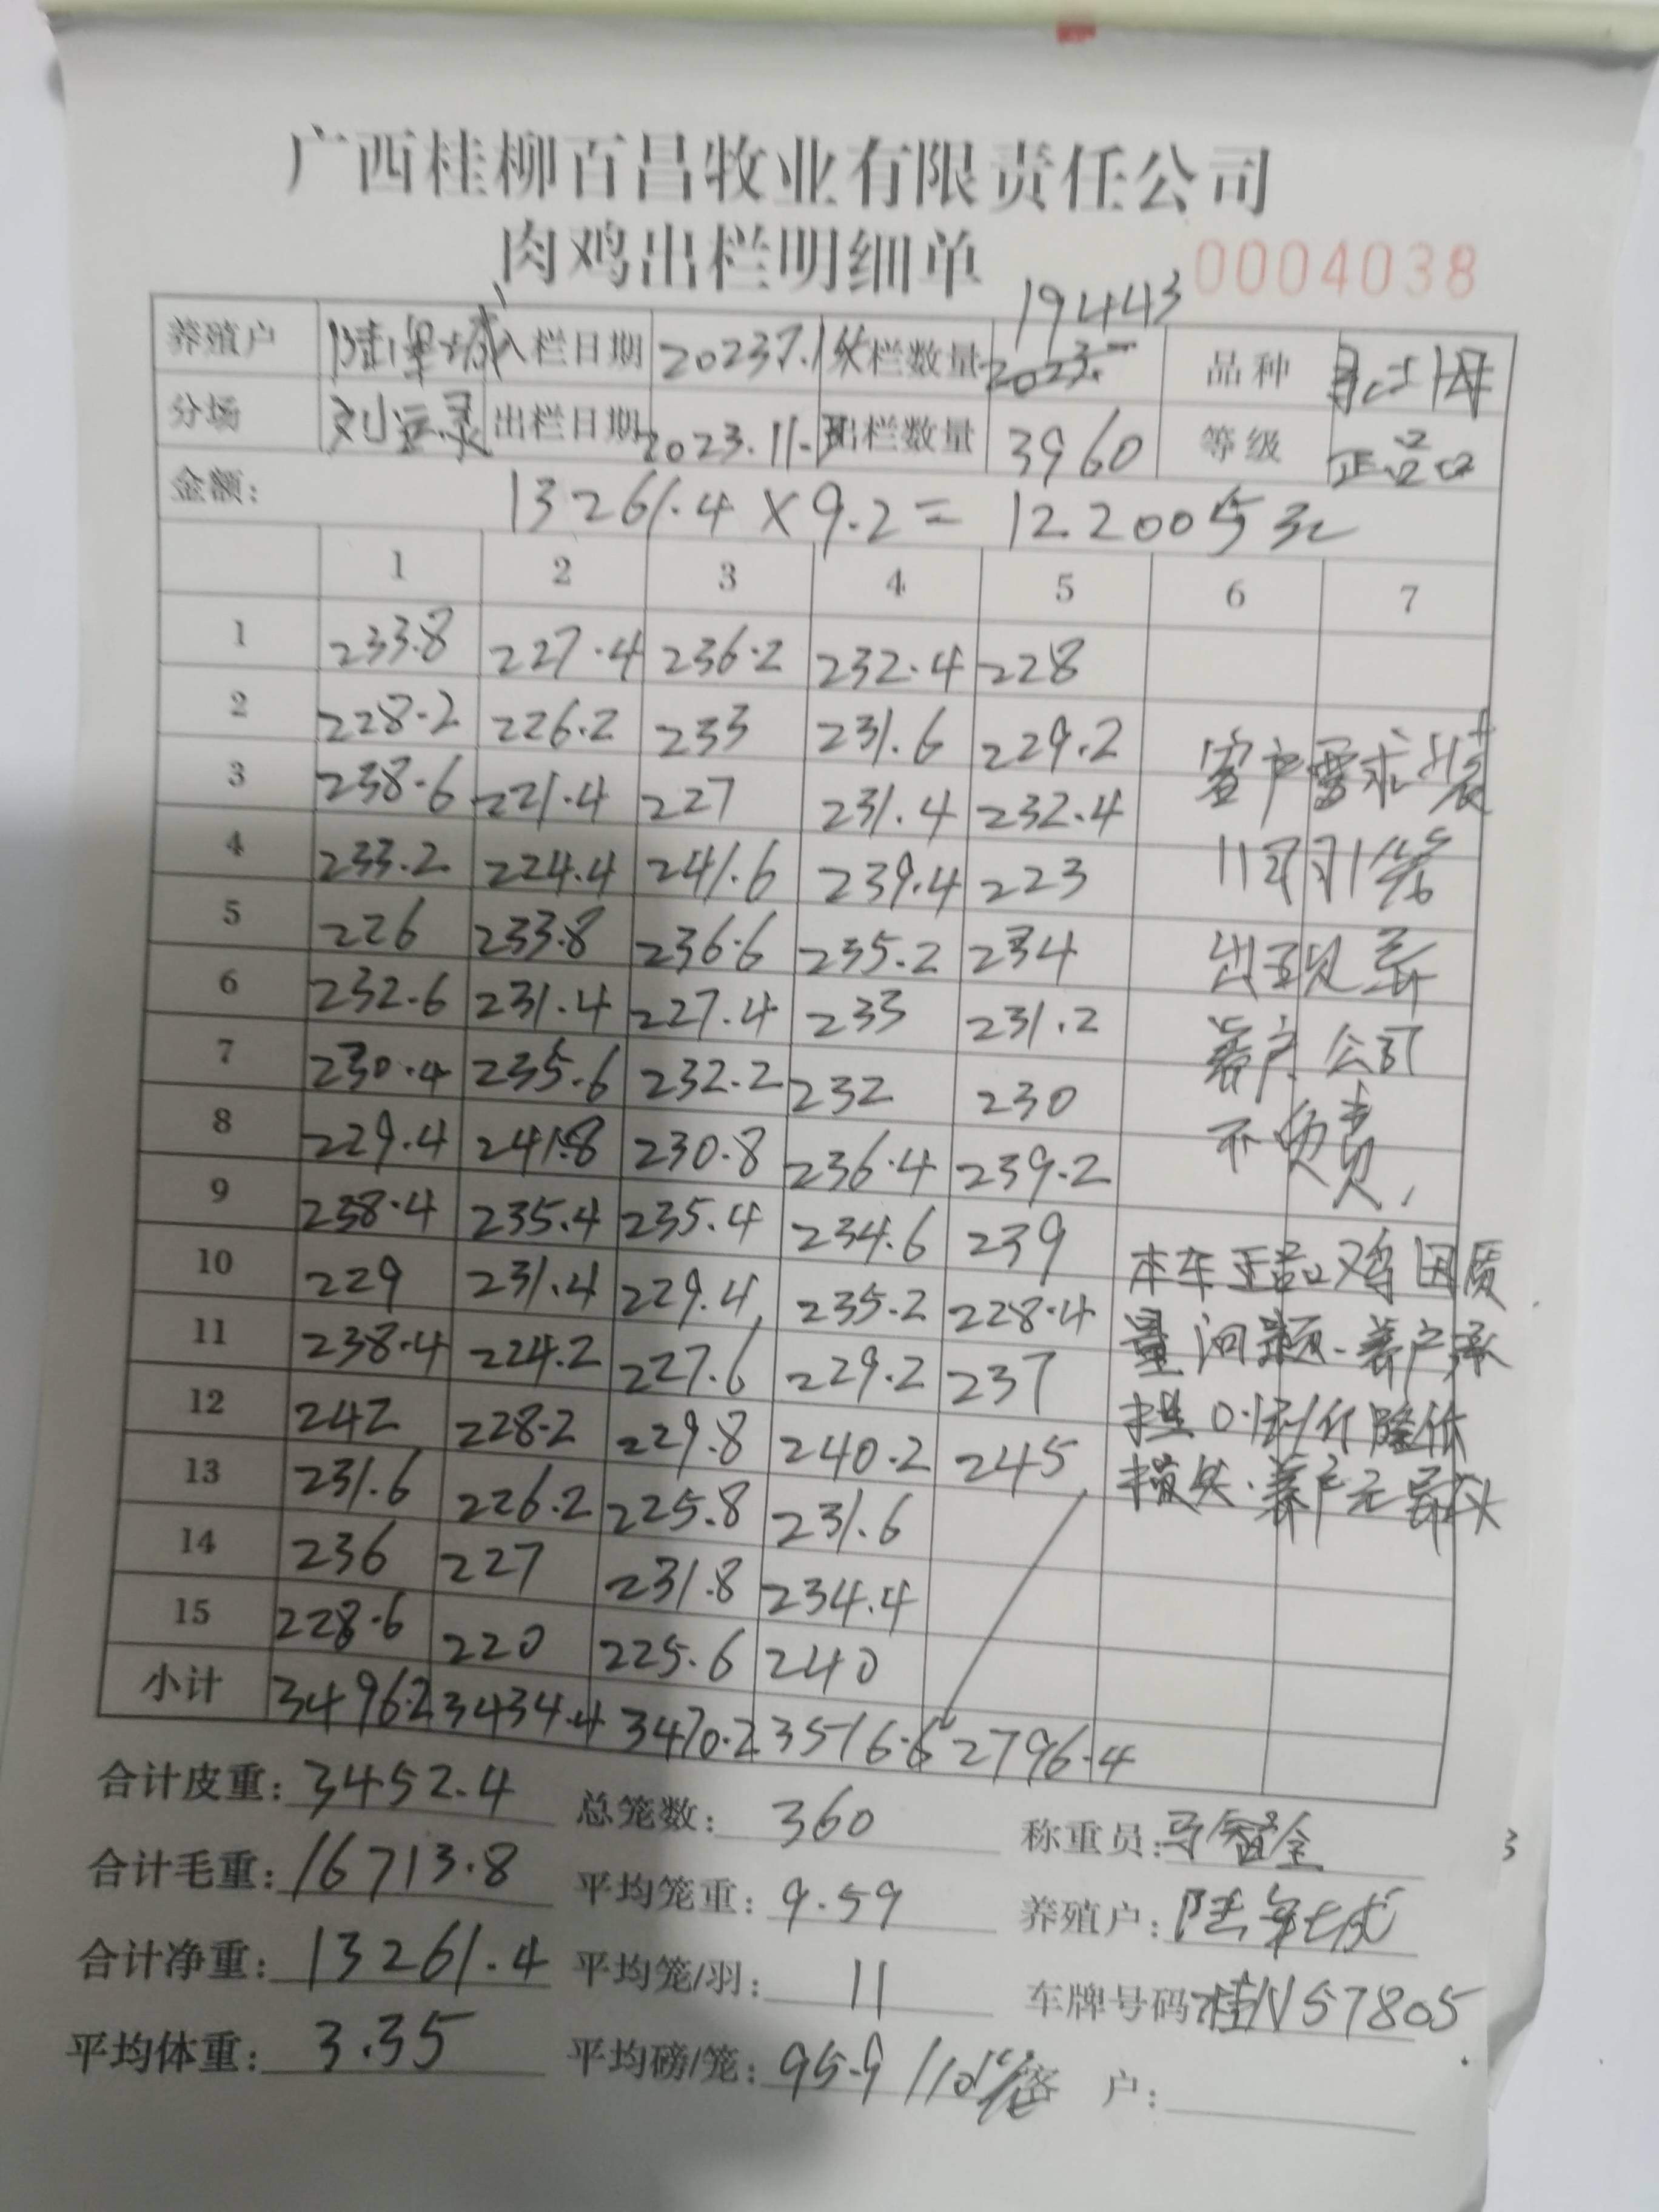 广西桂柳百昌牧业有限责任公司
肉鸡出栏明细单 0004038
19443
养殖户 入栏日期 20237.1 入栏数量 品种
分场 刘运录 出栏日期 2023.11.3 出栏数量 3960 等级 正品
金额: 13261.4×9.2=122005元
1 2 3 4 5 6 7
1 233.8 227.4 236.2 232.4 228
2 228.2 226.2 233 231.6 229.2
3 238.6 221.4 227 231.4 232.4
4 233.2 224.4 241.6 239.4 223
5 226 233.8 236.6 235.2 234
6 232.6 231.4 227.4 235 231.2
7 230.4 235.6 232.2 232 230
8 229.4 241.8 230.8 236.4 239.2
9 238.4 235.4 235.4 234.6 239
10 229 231.4 229.4 235.2 228.4
11 238.4 224.2 227.6 229.2 237
12 242 228.2 229.8 240.2 245
13 231.6 226.2 225.8 231.6
14 236 227 231.8 234.4
15 228.6 220 225.6 240
小计 3496.2 3434.4 3470.2 3516.6 2796.4
客户要求装
11只/笼
出现死
客户 公司
不负责,
本车正品鸡因质
量问题.养户承
担0.1到/斤降价
损失.养户无异议
合计皮重: 3452.4 总笼数: 360 称重员: 马智全
合计毛重: 16713.8 平均笼重: 9.59 养殖户:
合计净重: 13261.4 平均笼/羽: 11 车牌号码 桂N57805
平均体重: 3.35 平均磅/笼: 95.9/10笼 客 户: